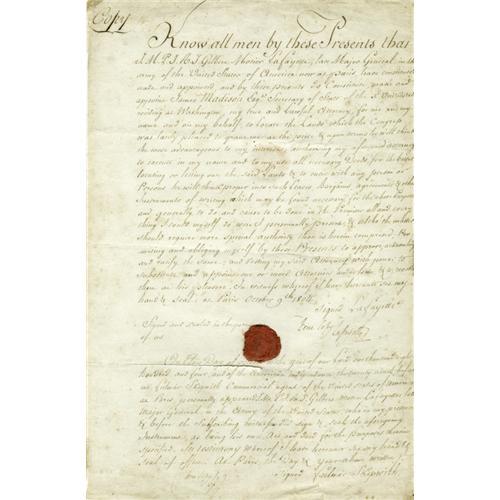 Copy
Know all men by these Presents that
I M. P. J. R. Gilbert Motier LaFayette, late Major General in the
army of the United States of America now at Paris have constituted
made and appointed and by these presents do Constitute make and
appoint James Madison Esqr. Secretary of State of the Ud. States
residing at Washington, my true and lawful Attorney for me and my
name and on my behalf to locate the Lands which the Congress
was lately pleased to grant me at the place & upon terms he will think
the most advantageous to my interest, authorising my aforesaid Attorney
to execute in my name and to my use all necessary Deeds for the
locating or letting the said Lands & to enter with any person or
Persons he will think proper into such Leases Bargains agreements & other
Instruments of writing which may be found necessary for the above purposes
and generally to do and cause to be done in the Premises all and every
thing I could myself do were I personally present & altho the matter
should require more special authority than is herein comprised. Pro
mising and obliging myself by these Presents to approve,
and ratify the same, and vesting my said Attorney with power to
substitute and appoint one or more Attornies under him & to revoke
them at his pleasure. In witness whereof I have hereunto set my
hand & seal, at Paris October 9th. 1804
Signed LaFayette
Signed and sealed in the presence
of us
true Copy
On this Day of in the year of our Lord one thousand eight
hundred and four, and of the American Independence the twenty ninth before
me Fulwar Skipwith Commercial agent of the United States of America
at Paris, personally appeared M. P. J. R. Gilbert Motier LaFayette late
Major General in the Army of the United States, who in my presence
& before the subscribing witnesses did sign & seal the aforegoing
Instrument, as being his own Act and Deed for the purposes therein
specified. In testimony whereof I have hereunto set my hand &
seal of office. At Paris the Day & year above written
Signed Fulwar Skipwith